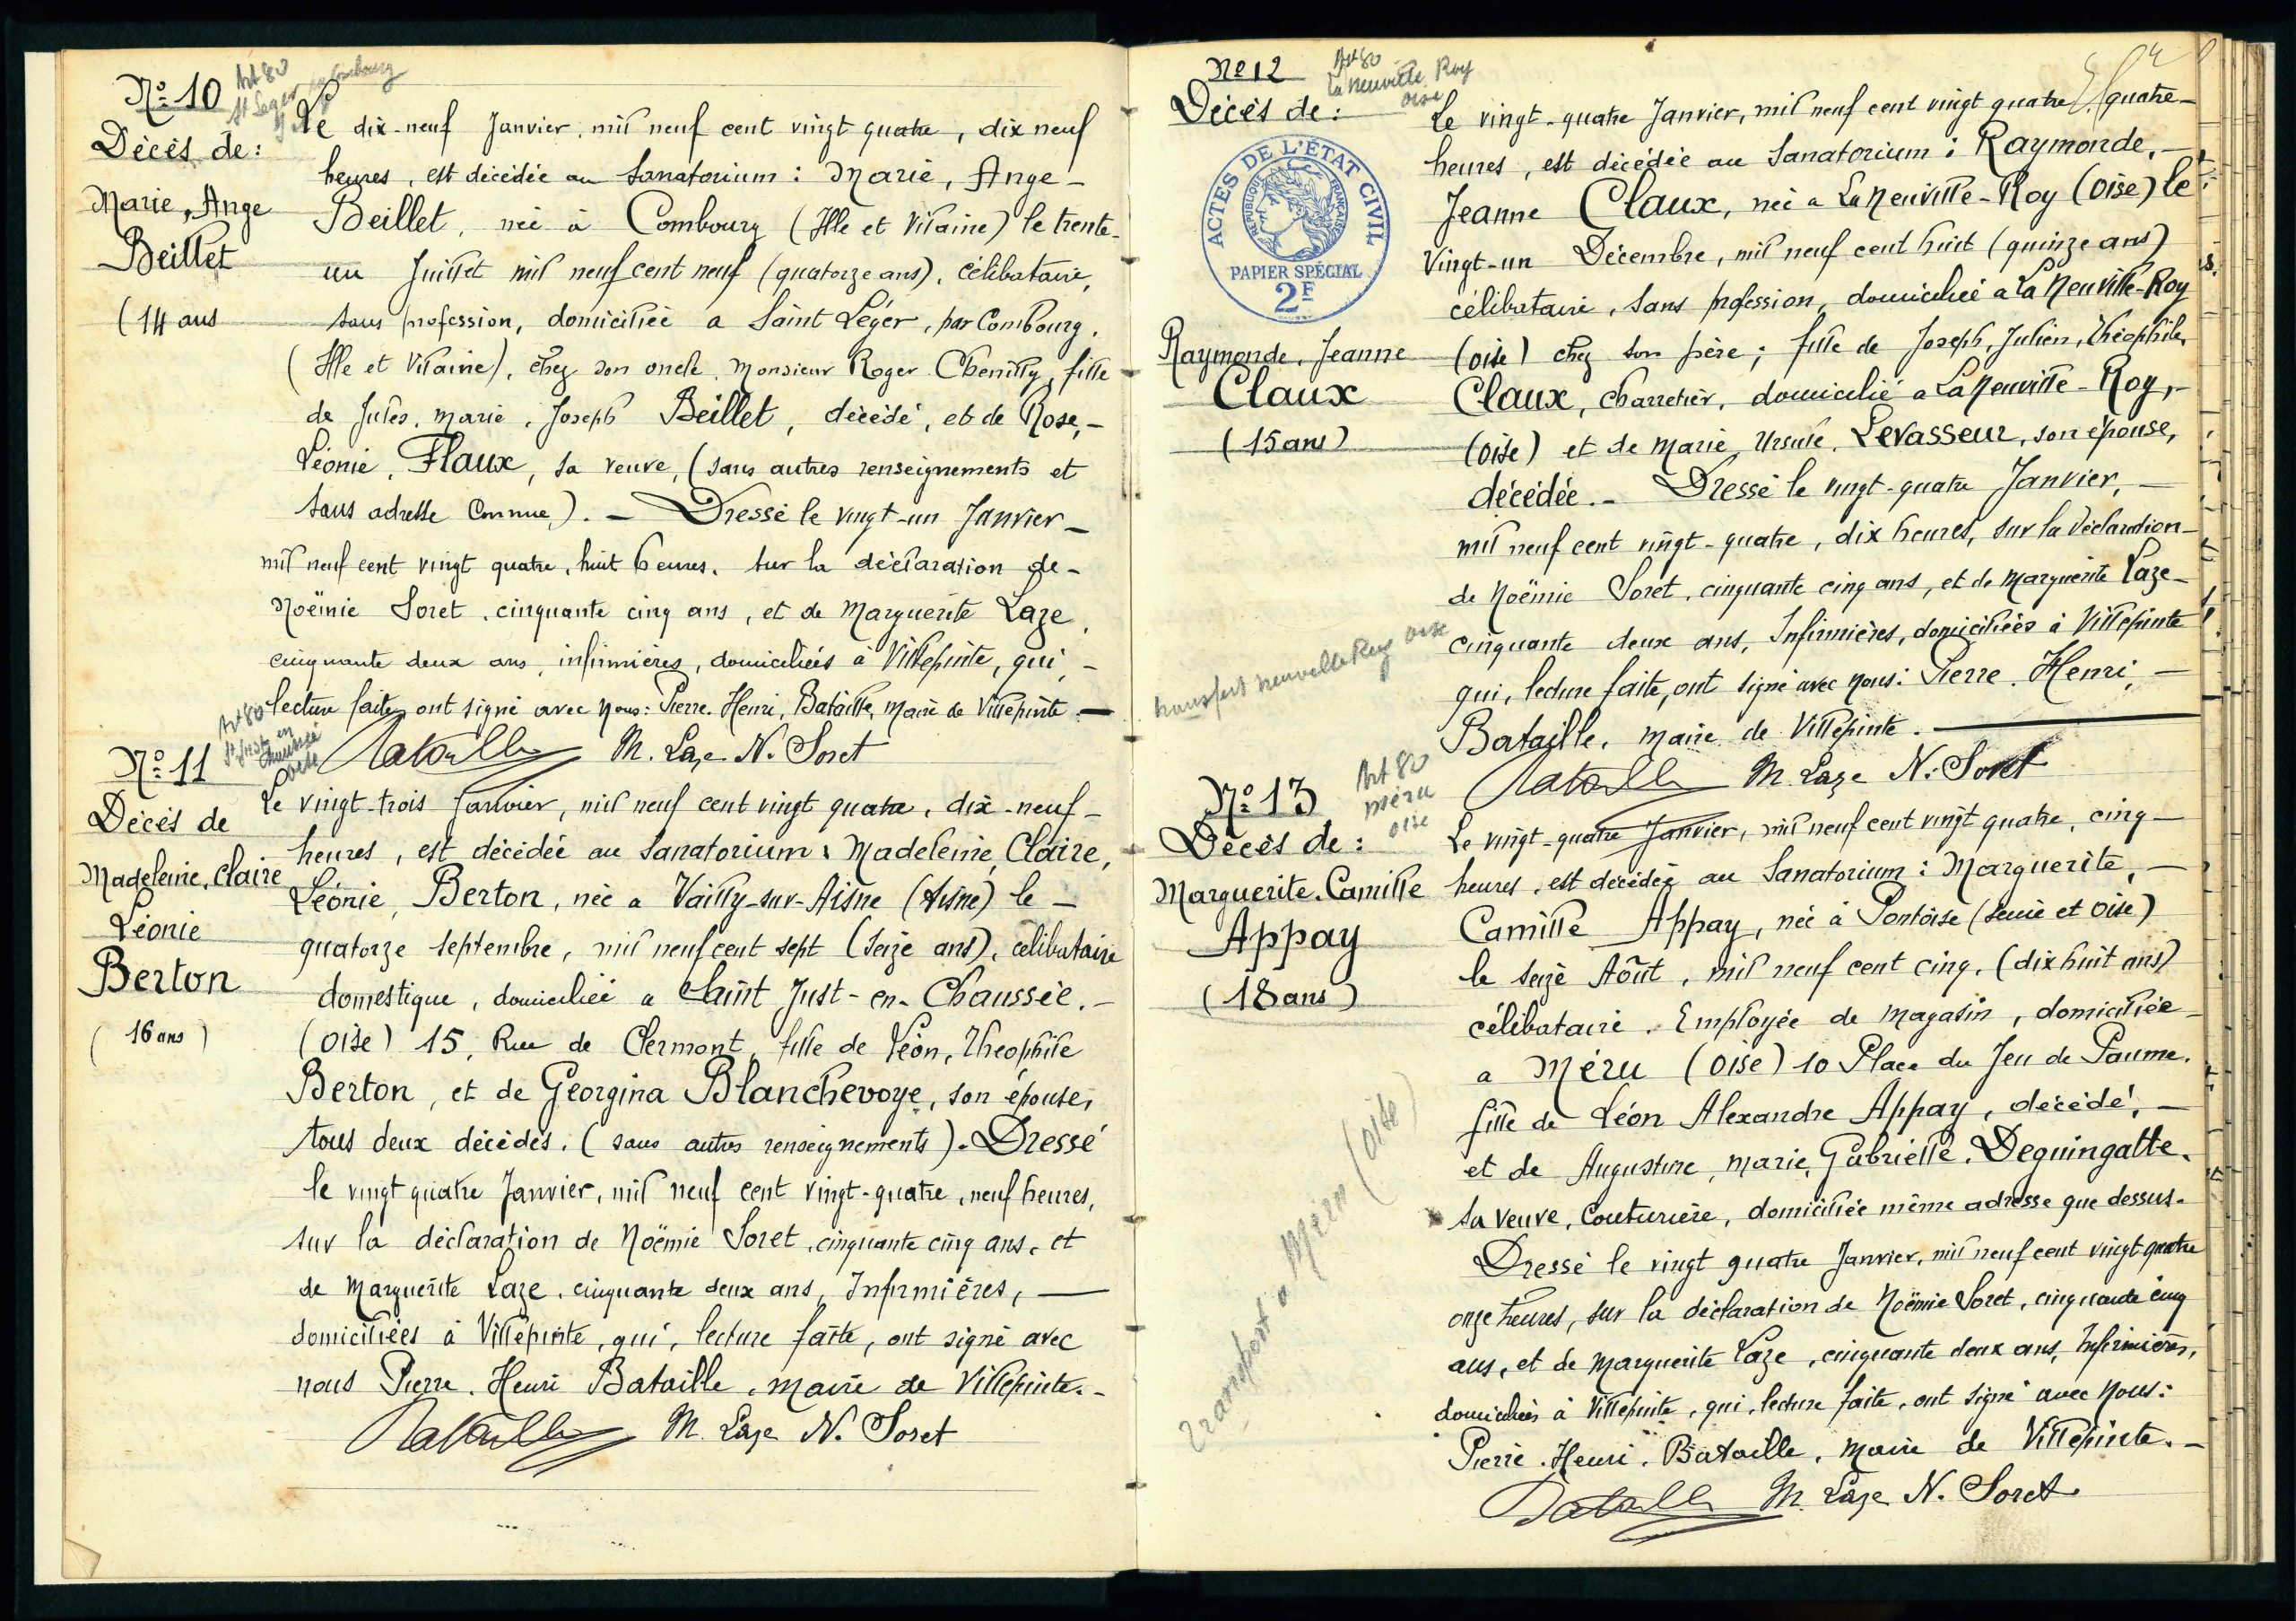 Nº 10
Art 80
St Leger par Combourg
Décés de:
Marie, Ange
Beillet
(14 ans
Le dix-neuf Janvier, mil neuf cent vingt quatre, dix neuf
heures, est décédée au Sanatorium: Marie, Ange-
Beillet, née à Combourg (Ille et Vilaine) le trente-
un Juillet mil neuf cent neuf (quatorze ans), célibataire,
sans profession, domiciliée a Saint Léger, par Combourg.
(Ille et Vilaine), chez son oncle, Monsieur Roger Chenilly, fille
de Jules, Marie, Joseph Beillet, décédé, et de Rose,-
Léonie, Flaux, sa veuve, (sans autres renseignements et
sans adresse connue). - Dressé le vingt-un Janvier-
mil neuf cent vingt quatre, huit heures, sur la déclaration de-
Noëmie Soret, cinquante cinq ans, et de Marguerite Laze,
cinquante deux ans, infirmières, domiciliées à Villepinte, qui,-
lecture faite, ont signé avec Nous: Pierre, Henri, Bataille, Maire de Villepinte.-
Bataille M. Laze N. Soret
Nº 11
Art 80
St Just en
Chaussée
Oise
Décés de
Madeleine, Claire
Léonie
Berton
(16 ans)
Le vingt-trois Janvier, mil neuf cent vingt quatre, dix-neuf-
heures, est décédée au Sanatorium: Madeleine, Claire,
Léonie, Berton, née a Vailly-sur-Aisne (Aisne) le -
quatorze septembre, mil neuf cent sept (seize ans), célibataire
domestique, domiciliée a Saint Just-en-Chaussée.-
(Oise) 15, Rue de Clermont, fille de Léon, Théophile
Berton, et de Georgina Blanchevoye, son épouse,
tous deux décédés. (sans autres renseignements). Dressé
le vingt quatre Janvier, mil neuf cent vingt-quatre, neuf heures,
sur la déclaration de Noëmie Soret, cinquante cinq ans, et
de Marguerite Laze, cinquante deux ans, Infirmières, -
domiciliées à Villepinte, qui, lecture faite, ont signé avec
nous Pierre, Henri Bataille, maire de Villepinte.-
Bataille M. Laze N. Soret
Nº 12
Art 80
La Neuville Roy
Oise
Décés de:
ACTES DE L'ÉTAT CIVIL
RÉPUBLIQUE FRANÇAISE
PAPIER SPÉCIAL
2F
Raymonde, Jeanne
Claux
(15 ans)
Le vingt-quatre Janvier, mil neuf cent vingt quatre, quatre-
heures, est décédée au Sanatorium: Raymonde,-
Jeanne Claux, née a La Neuville-Roy (Oise) le
Vingt-un Décembre, mil neuf cent huit (quinze ans)
célibataire, sans profession, domiciliée a La Neuville-Roy
(Oise) chez son père; fille de Joseph, Julien, Théophile,
Claux, charretier, domicilié a La Neuville-Roy,-
(Oise) et de Marie, Ursule, Levasseur, son épouse,
décédée.- Dressé le vingt-quatre Janvier,-
mil neuf cent vingt-quatre, dix heures, sur la déclaration-
de Noëmie Soret, cinquante cinq ans, et de Marguerite Laze-
cinquante deux ans, Infirmières, domiciliées à Villepinte
qui, lecture faite, ont signé avec nous: Pierre, Henri,-
Bataille, maire de Villepinte.-
transfert neuvelle Roy Oise
Bataille M. Laze N. Soret
Nº 13
Art 80
Méru
Oise
Décés de:
Marguerite, Camille
Appay
(18 ans)
transport a Méru (Oise)
Le vingt-quatre Janvier, mil neuf cent vingt quatre, cinq-
heures, est décédée au Sanatorium: Marguerite,-
Camille Appay, née à Pontoise (Seine et Oise)
le seize Août, mil neuf cent cinq, (dix huit ans)
célibataire, Employée de magasin, domiciliée-
a Méru (Oise) 10 Place du Jeu de Paume.
fille de Léon Alexandre Appay, décédé,-
et de Augustine, Marie, Gabrielle, Deguingatte.
sa veuve, Couturière, domiciliée même adresse que dessus.
Dressé le vingt quatre Janvier, mil neuf cent vingt quatre
onze heures, sur la déclaration de Noëmie Soret, cinquante cinq
ans, et de Marguerite Laze, cinquante deux ans, Infirmières,
domiciliées à Villepinte, qui, lecture faite, ont signé avec Nous:
Pierre, Henri, Bataille, Maire de Villepinte.-
Bataille M. Laze N. Soret